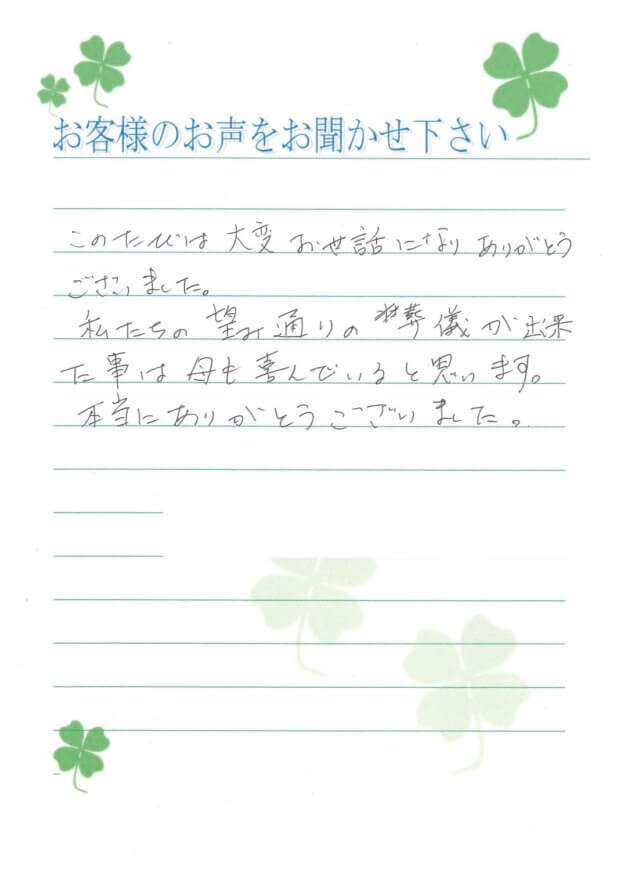 お客様のお声をお聞かせ下さい
このたびは大変お世話になりありがとう
ございました。
私たちの望み通りの葬儀が出来
た事は母も喜んでいると思います。
本当にありがとうございました。